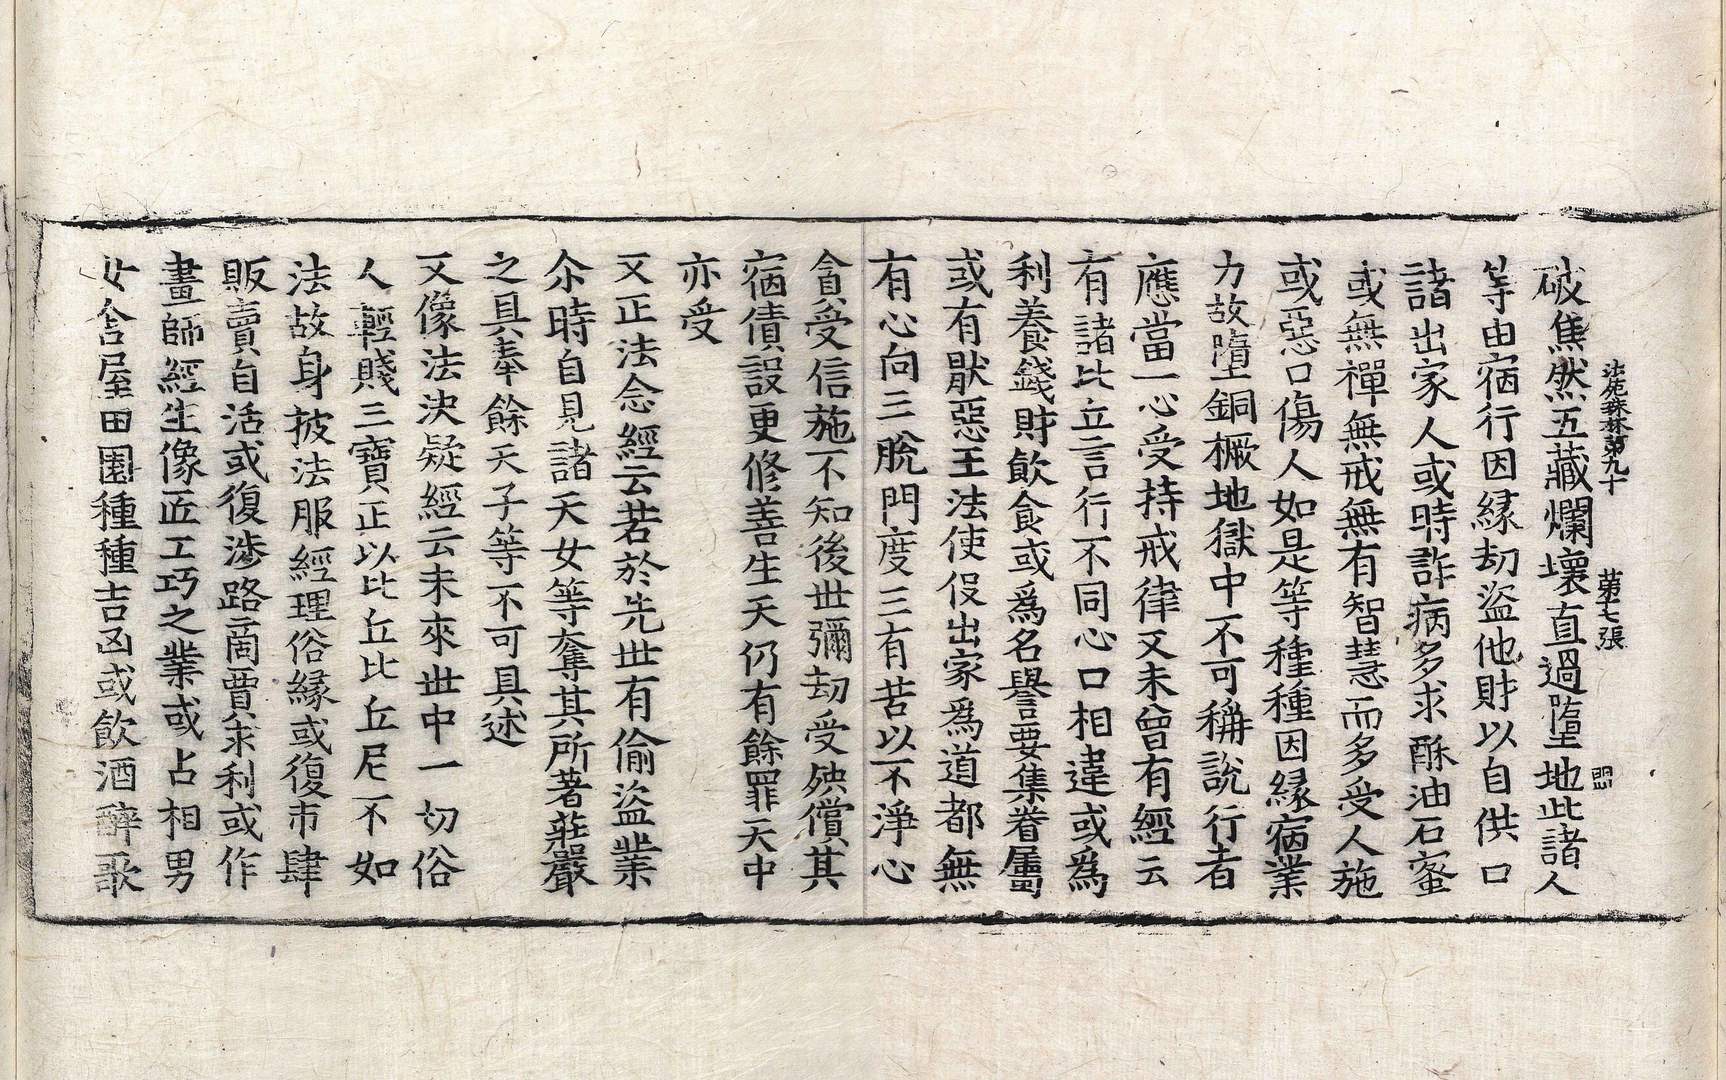 法苑珠林第九十 第七張 㗊
破焦然五藏爛壞直過墮地此諸人
等由宿行因緣劫盜他財以自供口
諸出家人或時詐病多求酥油石蜜
或無禪無戒無有智慧而多受人施
或惡口傷人如是等種種因緣宿業
力故墮銅橛地獄中不可稱說行者
應當一心受持戒律又未曾有經云
有諸比丘言行不同心口相違或爲
利養錢財飲食或爲名譽要集眷屬
或有猒惡王法使伇出家爲道都無
有心向三脫門度三有苦以不淨心
貪受信施不知後世彌劫受殃償其
宿債設更修善生天仍有餘罪天中
亦受
又正法念經云若於先世有偷盜業
尒時自見諸天女等奪其所著莊嚴
之具奉餘天子等不可具述
又像法決疑經云未來世中一切俗
人輕賤三寶正以比丘比丘尼不如
法故身披法服經理俗緣或復市肆
販賣自活或復涉路商賈求利或作
畫師經生像匠工巧之業或占相男
女舍屋田園種種吉凶或飲酒醉歌